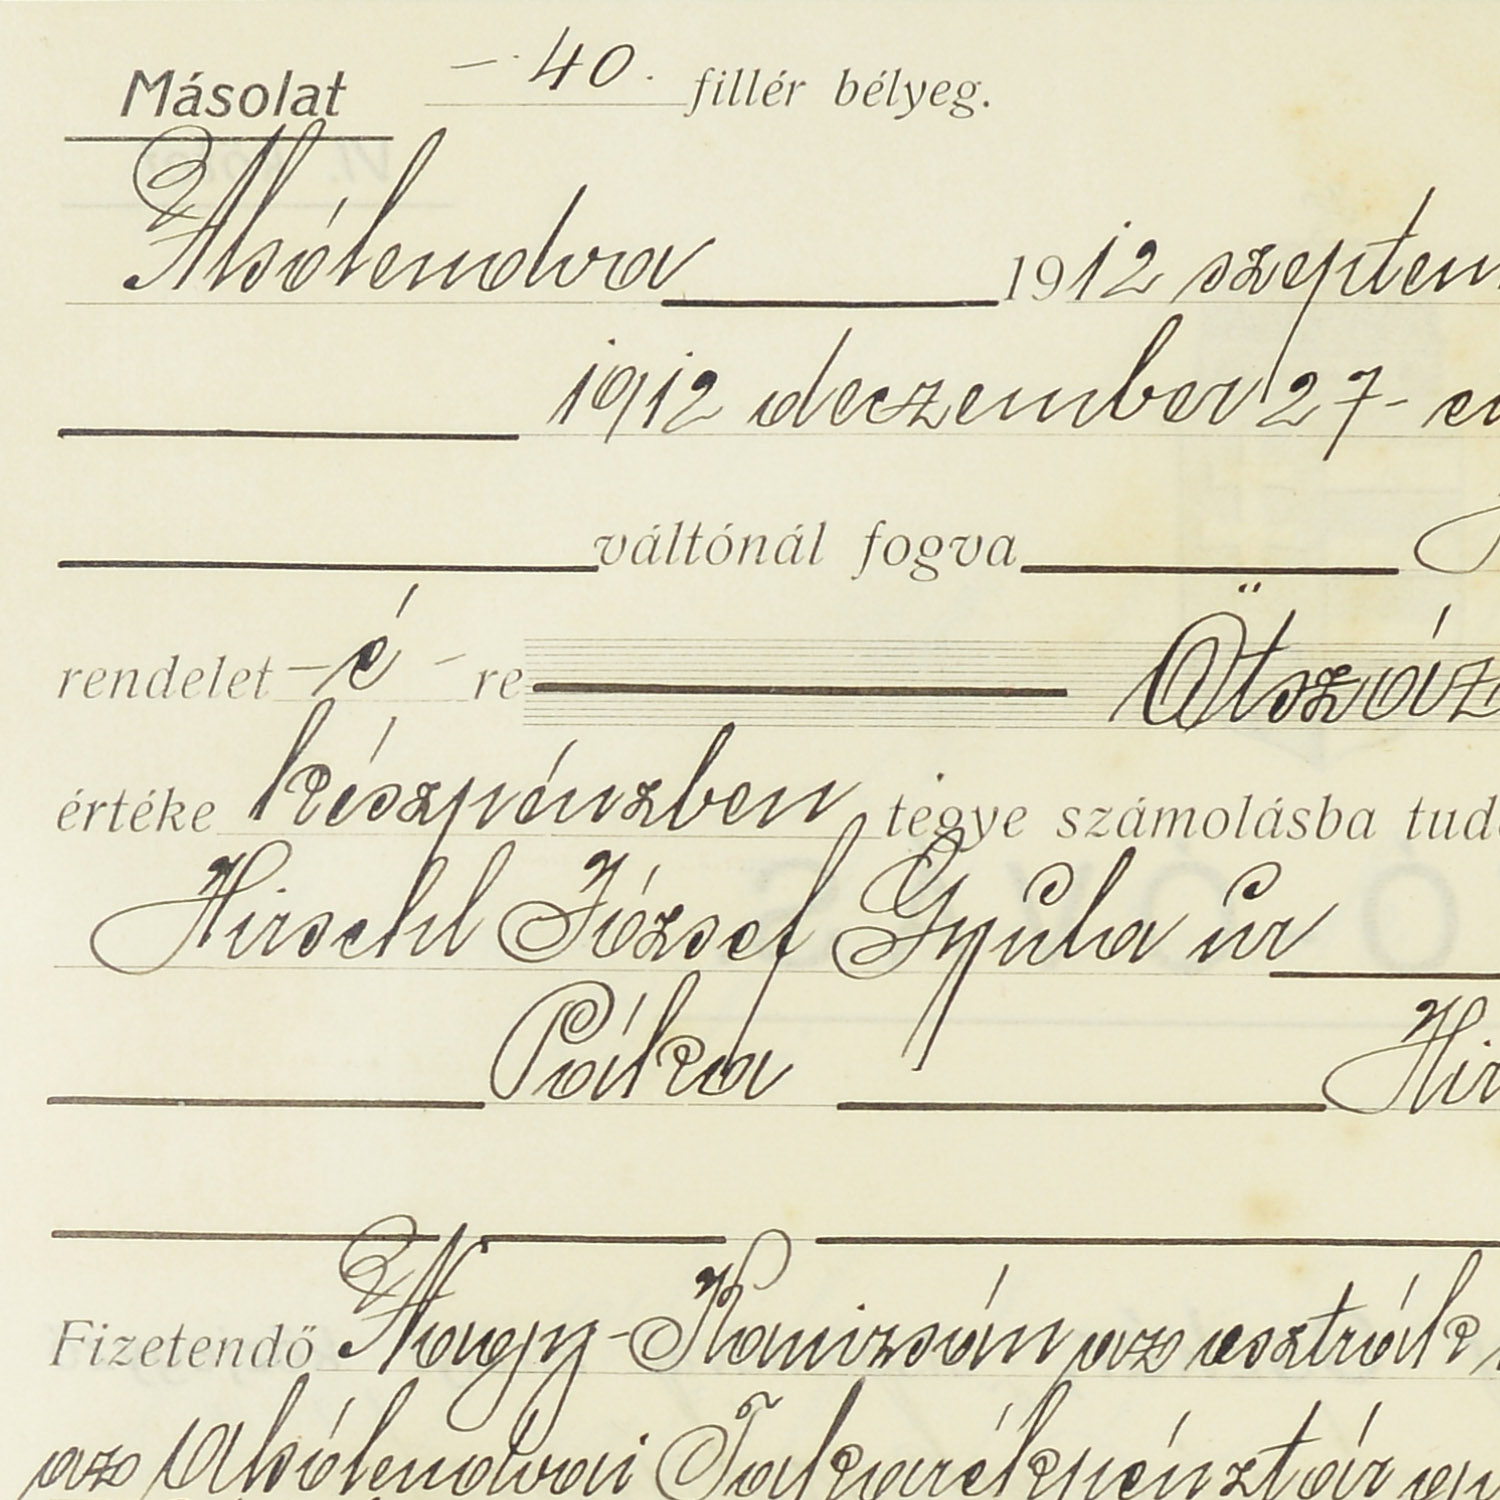 Másolat – 40. fillér bélyeg.
Alsólendva 1912 szeptem
1912 deczember 27-
váltónál fogva
rendelet – é – re Ötszáz
értéke készpénzben tegye számolásba
Hirschl József Gyula úr
Páka Hir
Fizetendő Nagy-Kanizsán az osztrák
az Alsólendvai Takarékpénztár